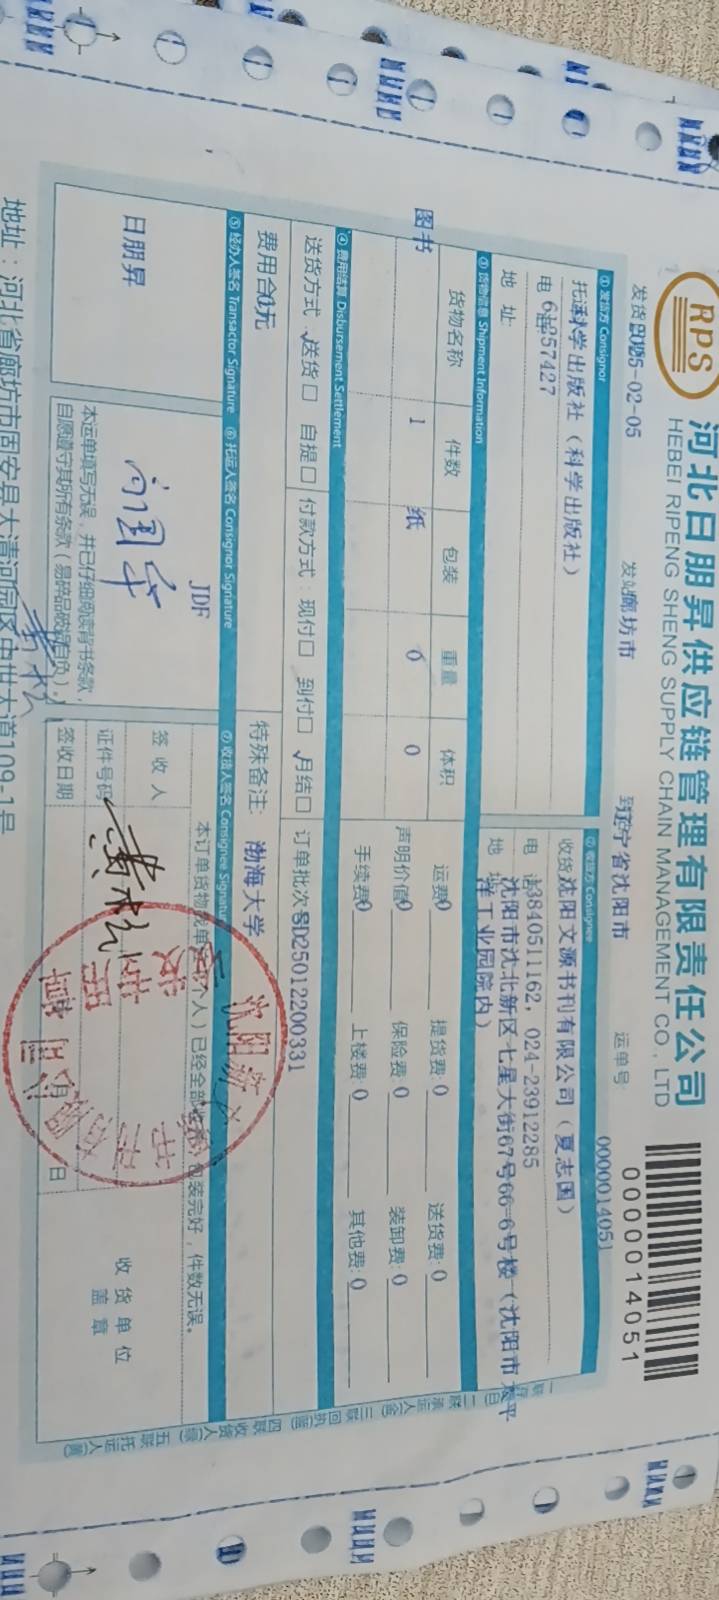 RPS
河北日朋昇供应链管理有限责任公司
HEBEI RIPENG SHENG SUPPLY CHAIN MANAGEMENT CO., LTD
0000014051
发货 2025-02-05
发站 廊坊市
到 辽宁省沈阳市
运单号
0000014051
① 发货方 Consignor
② 收货方 Consignee
托运 科学出版社（科学出版社）
收货 沈阳文源书刊有限公司（夏志国）
电
57427
电 话 13840511162, 024-23912285
地 址
地 址 沈阳市沈北新区七星大街67号66-6号楼（沈阳市太平洋工业园院内）
③ 货物信息 Shipment Information
货物名称 件数 包装 重量 体积
图书 1 纸 0 0
运费 0 提货费: 0 送货费: 0
声明价值 0 保险费: 0 装卸费: 0
手续费 0 上楼费: 0 其他费: 0
④ 费用结算 Disbursement Settlement
送货方式： √送货□ 自提□ 付款方式：现付□ 到付□ √月结□ 订单批次号 SD25012200331
费用合 0元
特殊备注: 渤海大学
⑤ 经办人签名 Transactor Signature ⑥ 托运人签名 Consignor Signature ⑦ 收货人签名 Consignee Signature
日朋昇
JDF
本运单填写无误，并已仔细阅读背书条款，
自愿遵守其所有条款（易碎品破损自负）。
个人）已经全部收到，包装完好，件数无误。
签 收 人
证件号码
签收日期
月 日
收货单位
盖 章
地址：河北省廊坊市固安县大清河园区中世大道109-1号